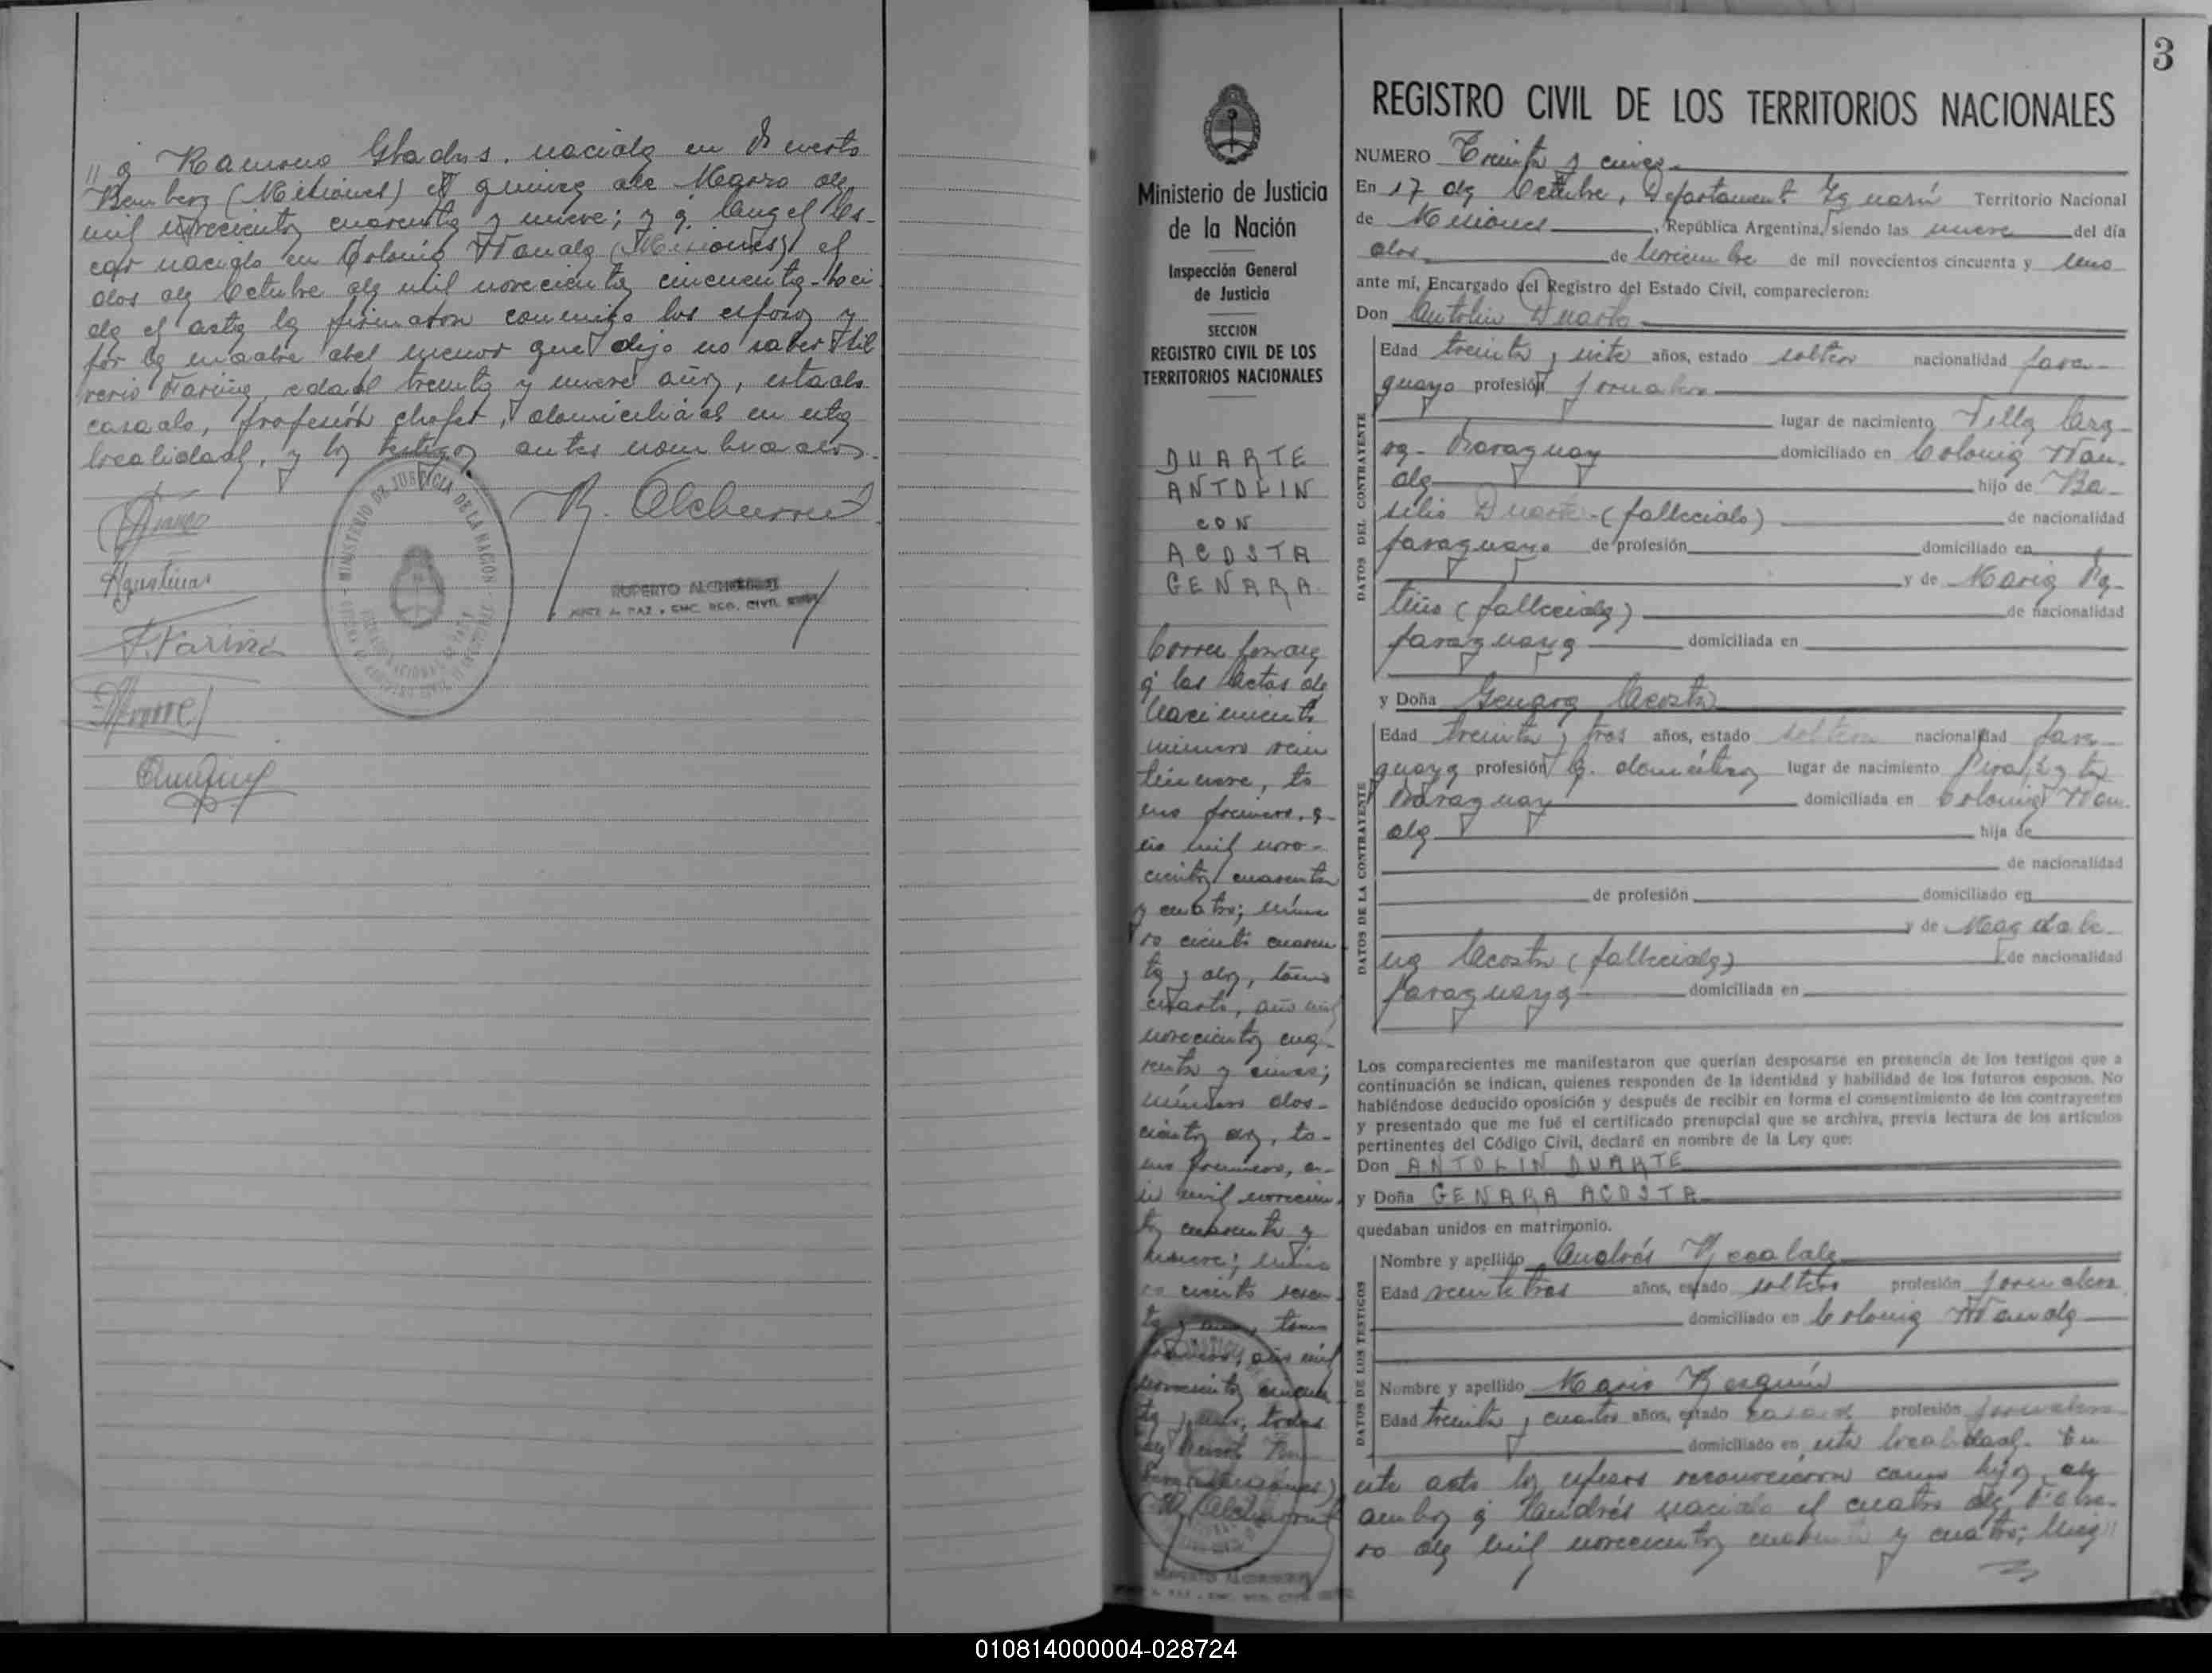 // a Ramona Gladys, nacida en Puerto
Bemberg (Misiones) el quince de Marzo de
mil novecientos cuarenta y nueve; y a Angel Os-
car nacido en Colonia Wanda (Misiones) el
dos de Octubre de mil novecientos cincuenta. Leí
da el acta la firmaron conmigo los esposos y
por la madre del menor que dijo no saber Sil
verio Fariña, edad treinta y nueve años, estado
casado, profesión chofer, domiciliado en esta
localidad, y los testigos antes nombrados.
R. Alchurrut
F. Fariña
MINISTERIO DE JUSTICIA DE LA NACION
RUPERTO
JUEZ DE PAZ Y ENC. REG. CIVIL
3
Ministerio de Justicia
de la Nación
Inspección General
de Justicia
SECCION
REGISTRO CIVIL DE LOS
TERRITORIOS NACIONALES
DUARTE
ANTOLIN
CON
ACOSTA
GENARA
Corresponde
a las Actas de
Nacimiento
número vein
tinueve, to
mo primero, a-
ño mil nove-
cientos cuarenta
y cuatro; núme
ro ciento cuaren
ta y dos, tomo
cuarto, año mil
novecientos cua-
renta y cinco;
número dos-
cientos dos, to-
mo primero, a-
ño mil novecien
tos cuarenta y
nueve; núme
ro ciento sesen
ta y tomo
año mil
novecientos cincuen
ta y uno, todas
de
(Misiones)
REGISTRO CIVIL DE LOS TERRITORIOS NACIONALES
NUMERO Treinta y cinco
En 17 de Octubre, Departamento Iguazú Territorio Nacional
de Misiones, República Argentina, siendo las nueve del día
dos de Noviembre de mil novecientos cincuenta y uno
ante mí, Encargado del Registro del Estado Civil, comparecieron:
Don Antolin Duarte
DATOS DEL CONTRAYENTE
Edad treinta y siete años, estado soltero nacionalidad para-
guaya profesión jornalero
lugar de nacimiento Villa
Paraguay domiciliado en Colonia Wan-
da hijo de Ba-
silio Duarte (fallecido) de nacionalidad
paraguaya de profesión domiciliado en
y de María Pa-
tiño (fallecida) de nacionalidad
paraguaya domiciliada en
y Doña Genara Acosta
DATOS DE LA CONTRAYENTE
Edad treinta y tres años, estado soltera nacionalidad para-
guaya profesión q. domésticos lugar de nacimiento
Paraguay domiciliada en Colonia Wan-
da hija de
de nacionalidad
de profesión domiciliado en
y de Magdale-
na Acosta (fallecida) de nacionalidad
paraguaya domiciliada en
Los comparecientes me manifestaron que querían desposarse en presencia de los testigos que a
continuación se indican, quienes responden de la identidad y habilidad de los futuros esposos. No
habiéndose deducido oposición y después de recibir en forma el consentimiento de los contrayentes
y presentado que me fué el certificado prenupcial que se archiva, previa lectura de los artículos
pertinentes del Código Civil, declaré en nombre de la Ley que:
Don ANTOLIN DUARTE
y Doña GENARA ACOSTA
quedaban unidos en matrimonio.
DATOS DE LOS TESTIGOS
Nombre y apellido Andrés
Edad veintitres años, estado soltero profesión jornalero
domiciliado en Colonia Wanda
Nombre y apellido Mario
Edad treinta y cuatro años, estado casado profesión jornalero
domiciliado en esta localidad. En
este acto los esposos reconocieron como hijos de
ambos a Andrés nacido el cuatro de Febre-
ro de mil novecientos cuarenta y cuatro; //
010814000004-028724